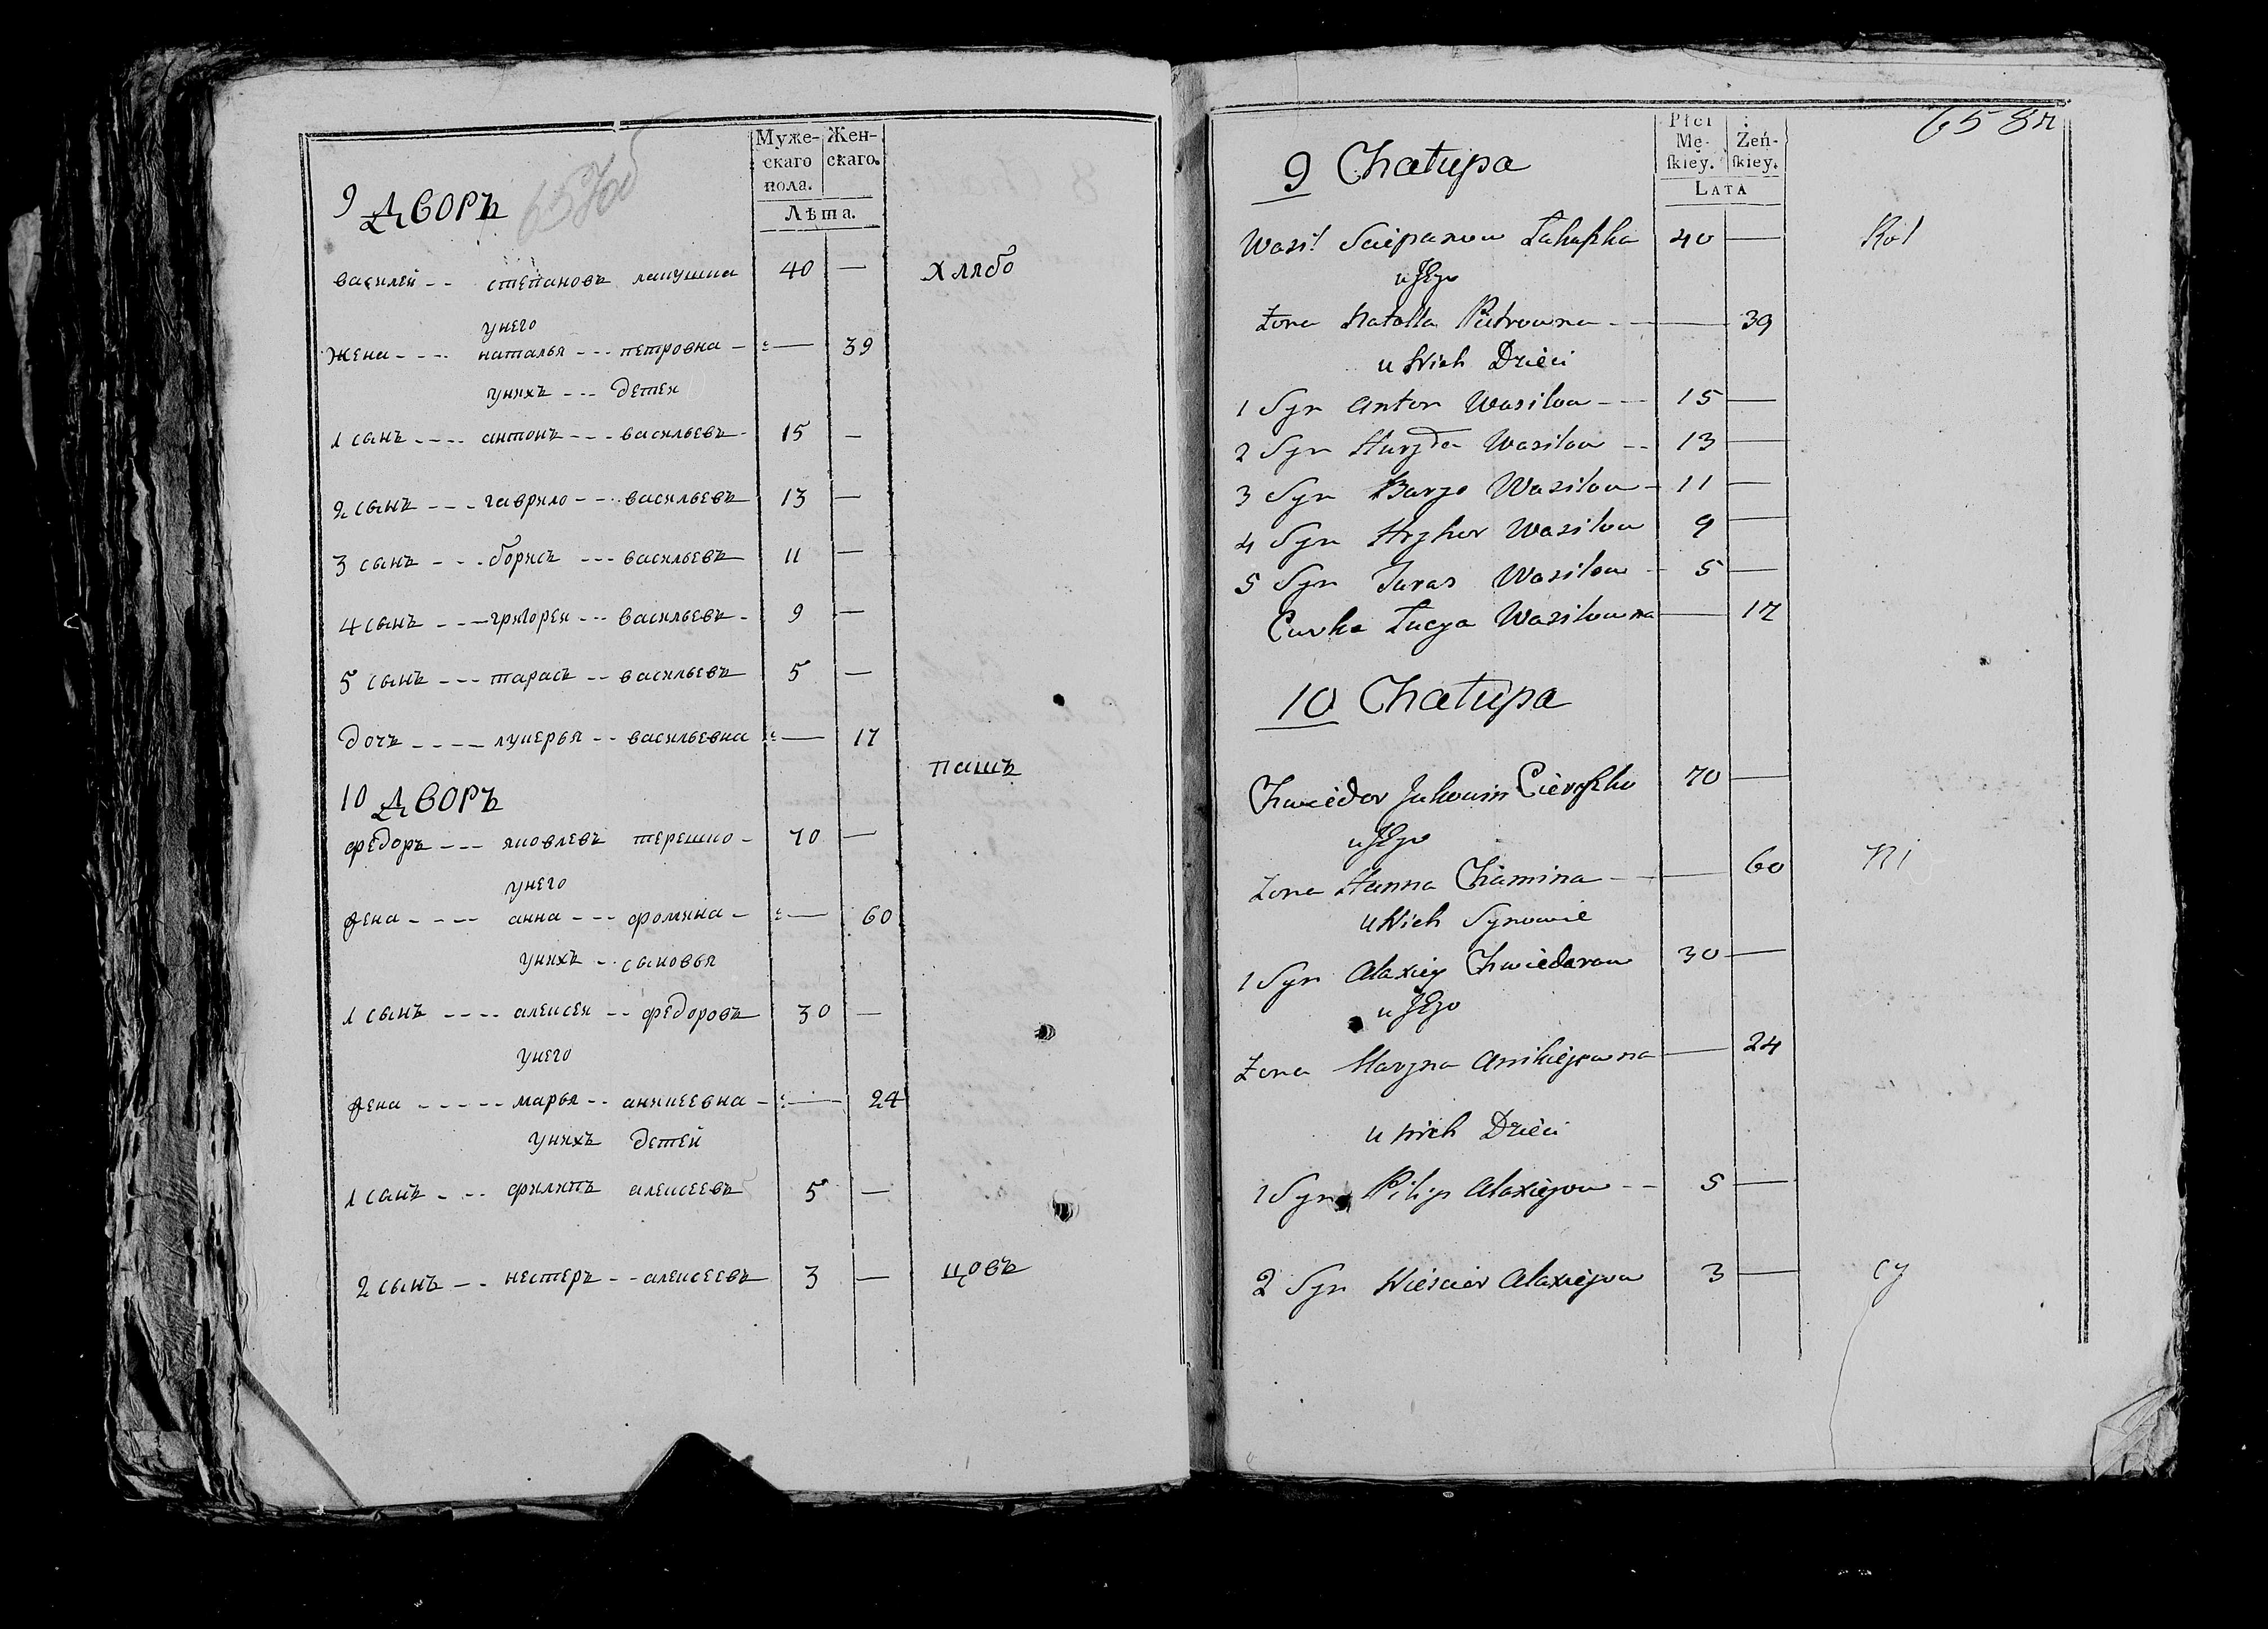 657об
Муже- Жен-
скаго скаго.
пола.
Лѣта.
9 ДВОРЪ
василей -- степановъ лапушка 40 — хлябо
унего
жена ---- наталья --- петровна - — 39
унихъ --- детей
1 сынъ ---- антонъ --- васильевъ - 15 —
2 сынъ --- гаврило --- васильевъ 13 —
3 сынъ --- борисъ --- васильевъ 11 —
4 сынъ --- григорей --- васильевъ - 9 —
5 сынъ --- тарасъ -- васильевъ 5 —
дочъ ---- лукерья -- васильевна — 17
пашъ
10 ДВОРЪ
федоръ --- яковлевъ терешко - 70 —
унего
жена ---- анна --- фомина - — 60
унихъ -- сыновья
1 сынъ ---- алексей -- федоровъ 30 —
унего
жена ----- марья -- аникеевна - — 24
унихъ детей
1 сынъ --- филипъ алексеевъ 5 —
2 сынъ -- нестеръ -- алексеевъ 3 — цовъ
658н
Płci
Mę- Żeń-
ſkiey. ſkiey.
LATA
9 Chałupa
Wasil Sciepanow Łapuszka 40 — Rol
u Jego
Żona Natalla Piutrowna -- — 39
u Nich Dzieci
1 Syn Anton Wasilow -- 15 —
2 Syn Wasilow -- 13 —
3 Syn Barys Wasilow - 11 —
4 Syn Hryhor Wasilow 9 —
5 Syn Taras Wasilow - 5 —
Curka Łucya Wasilowna — 17
10 Chałupa
Chwiedor Jakowin Cieroszko 70 —
u Jego
Żona Hanna Chamina -- — 60 ni
u Nich Synowie
1 Syn Alaxiey Chwiedarow 30 —
u Jego
Żona Maryna Anikiejowna — 24
u Nich Dzieci
1 Syn Pilip Alaxiejow -- 5 —
2 Syn Niescier Alaxiejow 3 — cy